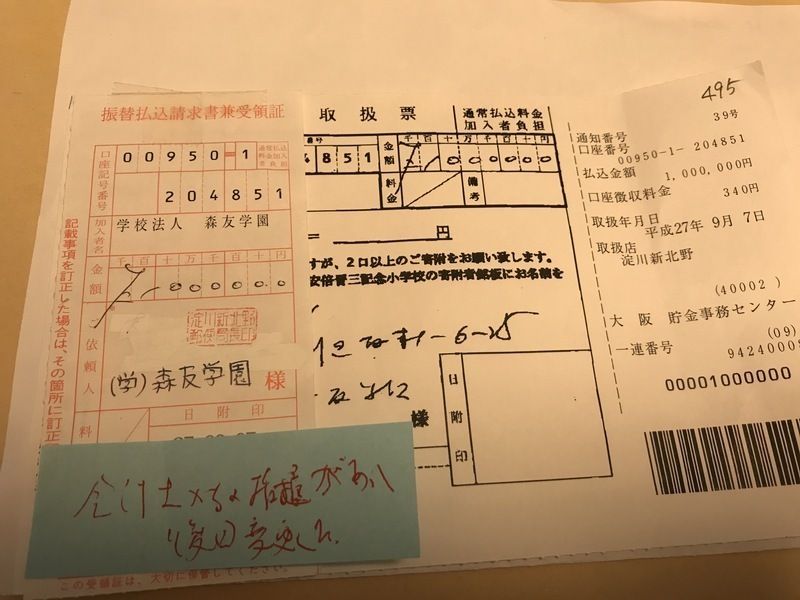 振替払込請求書兼受領証
口座記号番号
00950-1
通常払込料金加入者負担
204851
加入者名
学校法人 森友学園
金額
千百十万千百十円
000000
ご依頼人
淀川新北野
郵便局長印
(学)森友学園 様
料
日附印
記載事項を訂正した場合は、その箇所に訂正
この受領証は、大切に保管してください。
後日変更した
取扱票
通常払込料金
加入者負担
4851
金額
千百十万千百十円
料金
備考
= 円
すが、2口以上のご寄附をお願い致します。
安倍晋三記念小学校の寄附者銘板にお名前を
-6-25
様
日附印
495
39号
通知番号
口座番号
00950-1- 204851
払込金額 1,000,000円
口座徴収料金 340円
取扱年月日
平成27年 9月 7日
取扱店
淀川新北野
(40002)
大阪 貯金事務センター
(09)
一連番号
9424000
00001000000